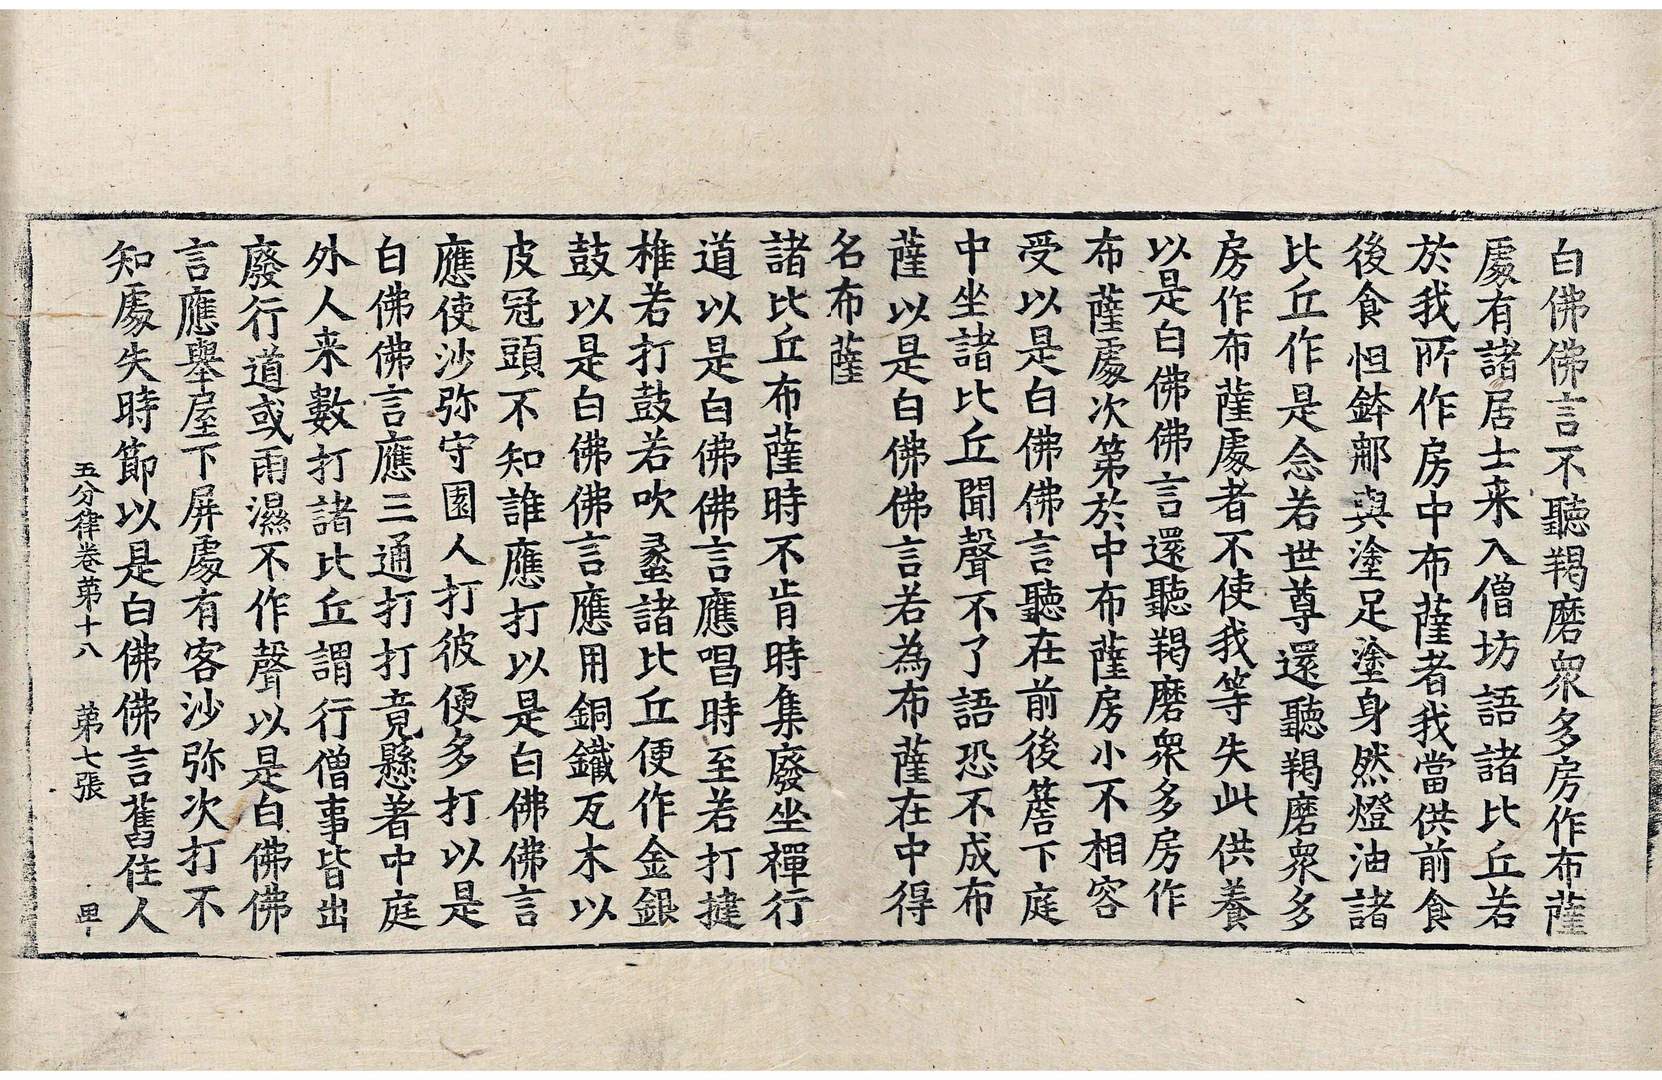 白佛佛言不聽羯磨衆多房作布薩
處有諸居士来入僧坊語諸比丘若
於我所作房中布薩者我當供前食
後食怛鉢那與塗足塗身然燈油諸
比丘作是念若世尊還聽羯磨衆多
房作布薩處者不使我等失此供養
以是白佛佛言還聽羯磨衆多房作
布薩處次第於中布薩房小不相容
受以是白佛佛言聽在前後簷下庭
中坐諸比丘聞聲不了語恐不成布
薩以是白佛佛言若為布薩在中得
名布薩
諸比丘布薩時不肯時集廢坐禪行
道以是白佛佛言應唱時至若打揵
椎若打鼓若吹蠡諸比丘便作金銀
鼓以是白佛佛言應用銅鐵瓦木以
皮冠頭不知誰應打以是白佛佛言
應使沙弥守園人打彼便多打以是
白佛佛言應三通打打竟懸著中庭
外人来數打諸比丘謂行僧事皆出
廢行道或雨濕不作聲以是白佛佛
言應舉屋下屏處有客沙弥次打不
知處失時節以是白佛佛言舊住人
五分律卷苐十八 苐七張